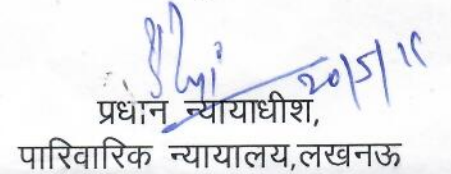 20/5/15
प्रधान न्यायाधीश,
पारिवारिक न्यायालय,लखनऊ